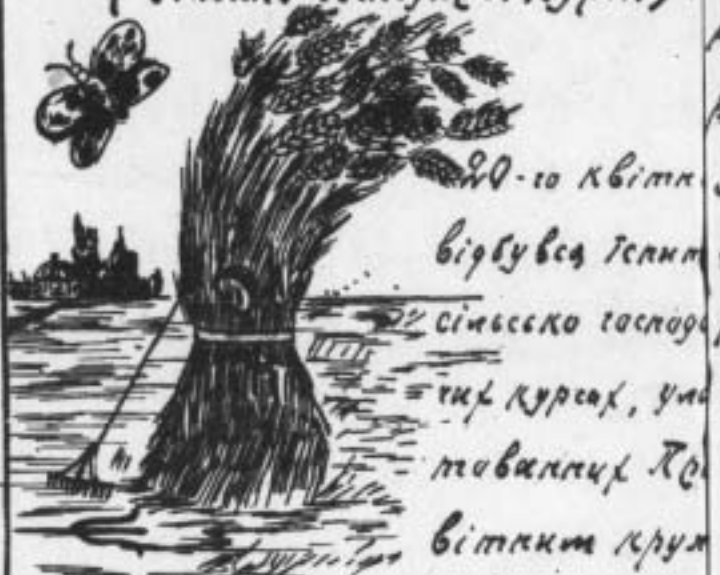 20-го квітн
відбувся Іспит
сільсько господ
чих курсах, ула
тованних Пр
вітним круж